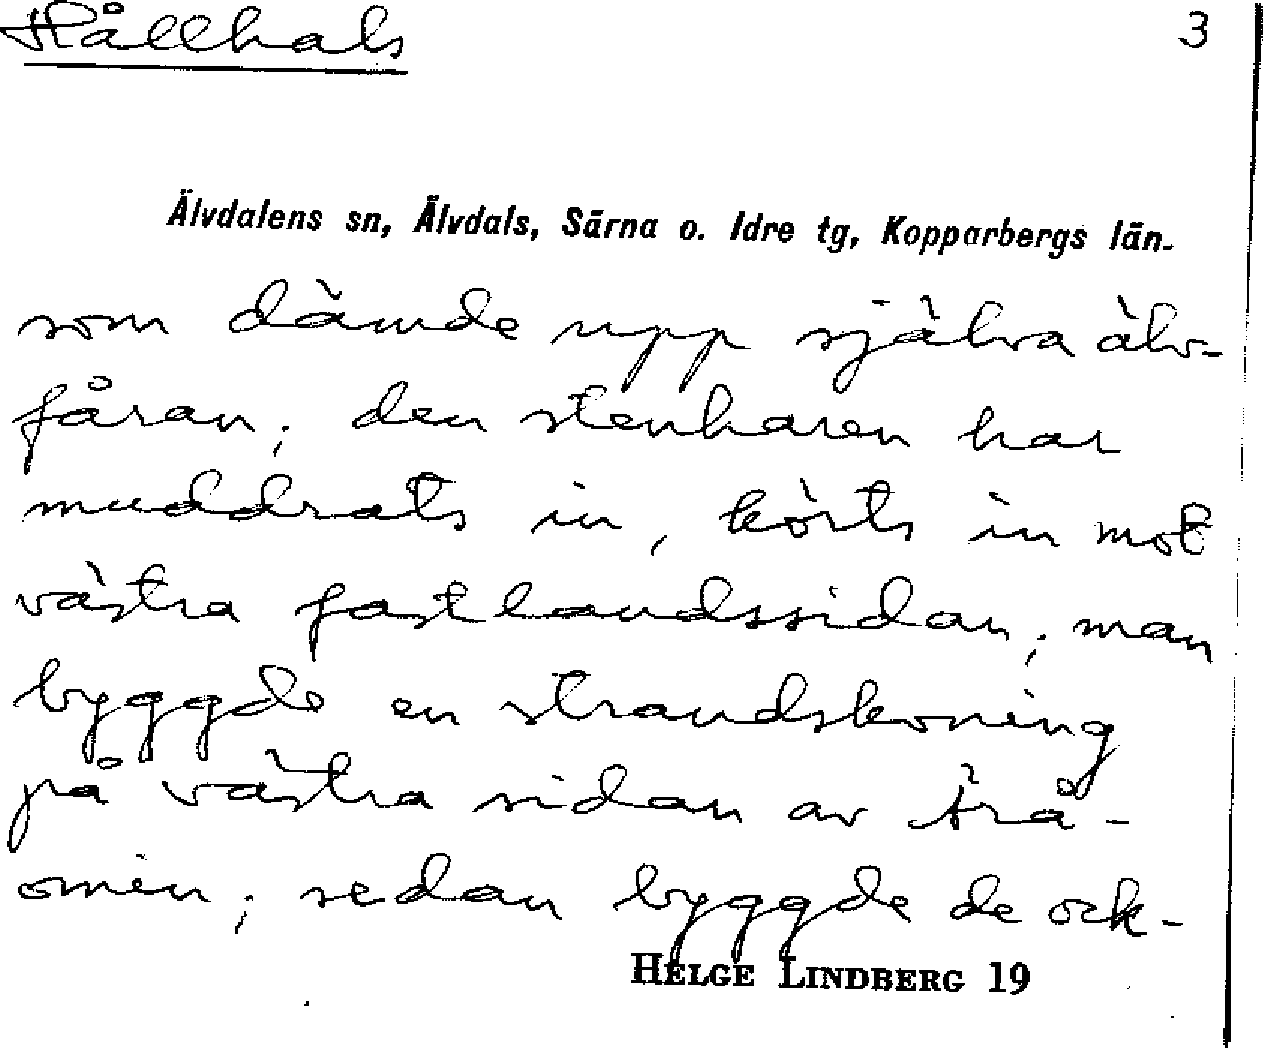 Hållhals 3
Älvdalens sn, Älvdals, Särna o. Idre tg, Kopparbergs län.
som dämde upp själva älv-
fåran; den stenharen har
muddrats in, körts in mot
västra fastlandssidan; man
byggde en strandskoning
på västra sidan av Årå-
omen; sedan byggde de ock-
HELGE LINDBERG 19